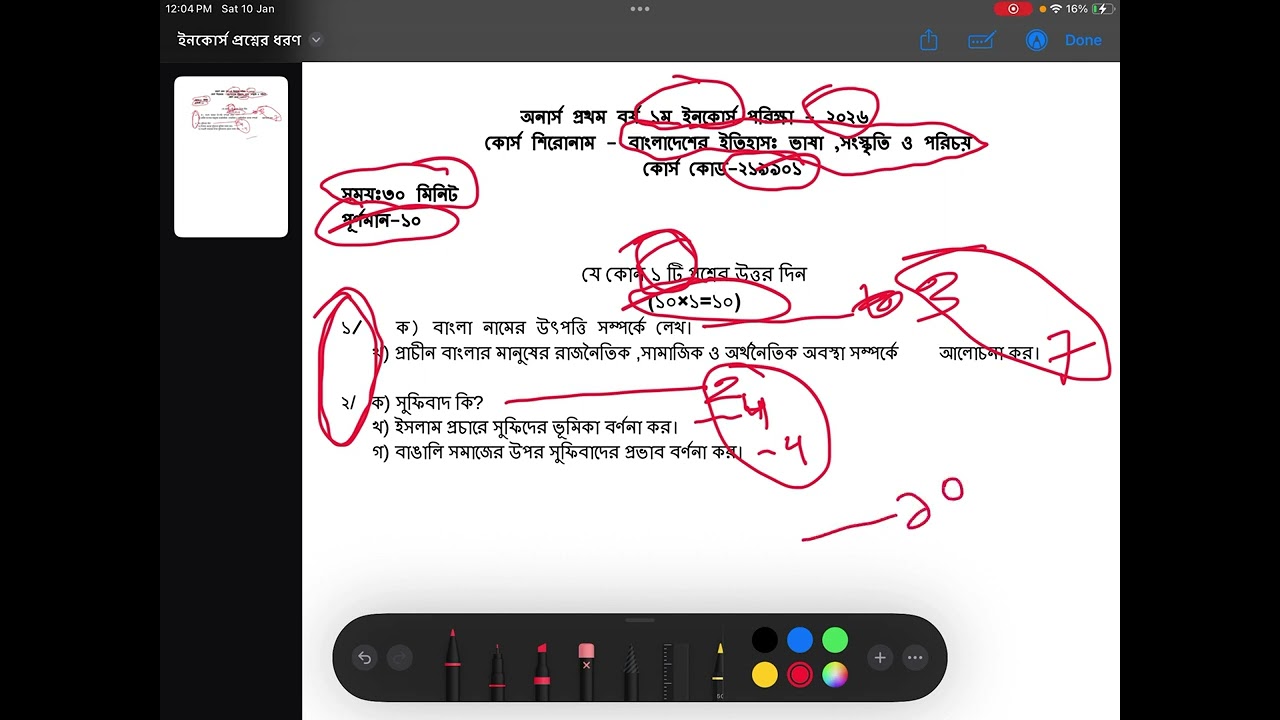 12:04 PM Sat 10 Jan 16%
ইনকোর্স প্রশ্নের ধরণ Done
অনার্স প্রথম বর্ষ ১ম ইনকোর্স পরিক্ষা - ২০২৬
কোর্স শিরোনাম - বাংলাদেশের ইতিহাসঃ ভাষা ,সংস্কৃতি ও পরিচয়
কোর্স কোড-২১৯৯০১
সময়ঃ৩০ মিনিট
পূর্ণমান-১০
যে কোন ১ টি প্রশ্নের উত্তর দিন
(১০×১=১০)
১/ ক) বাংলা নামের উৎপত্তি সম্পর্কে লেখ। 3
খ) প্রাচীন বাংলার মানুষের রাজনৈতিক ,সামাজিক ও অর্থনৈতিক অবস্থা সম্পর্কে আলোচনা কর। 7
২/ ক) সুফিবাদ কি? 2
খ) ইসলাম প্রচারে সুফিদের ভূমিকা বর্ণনা কর। 4
গ) বাঙালি সমাজের উপর সুফিবাদের প্রভাব বর্ণনা কর। - 4
১০